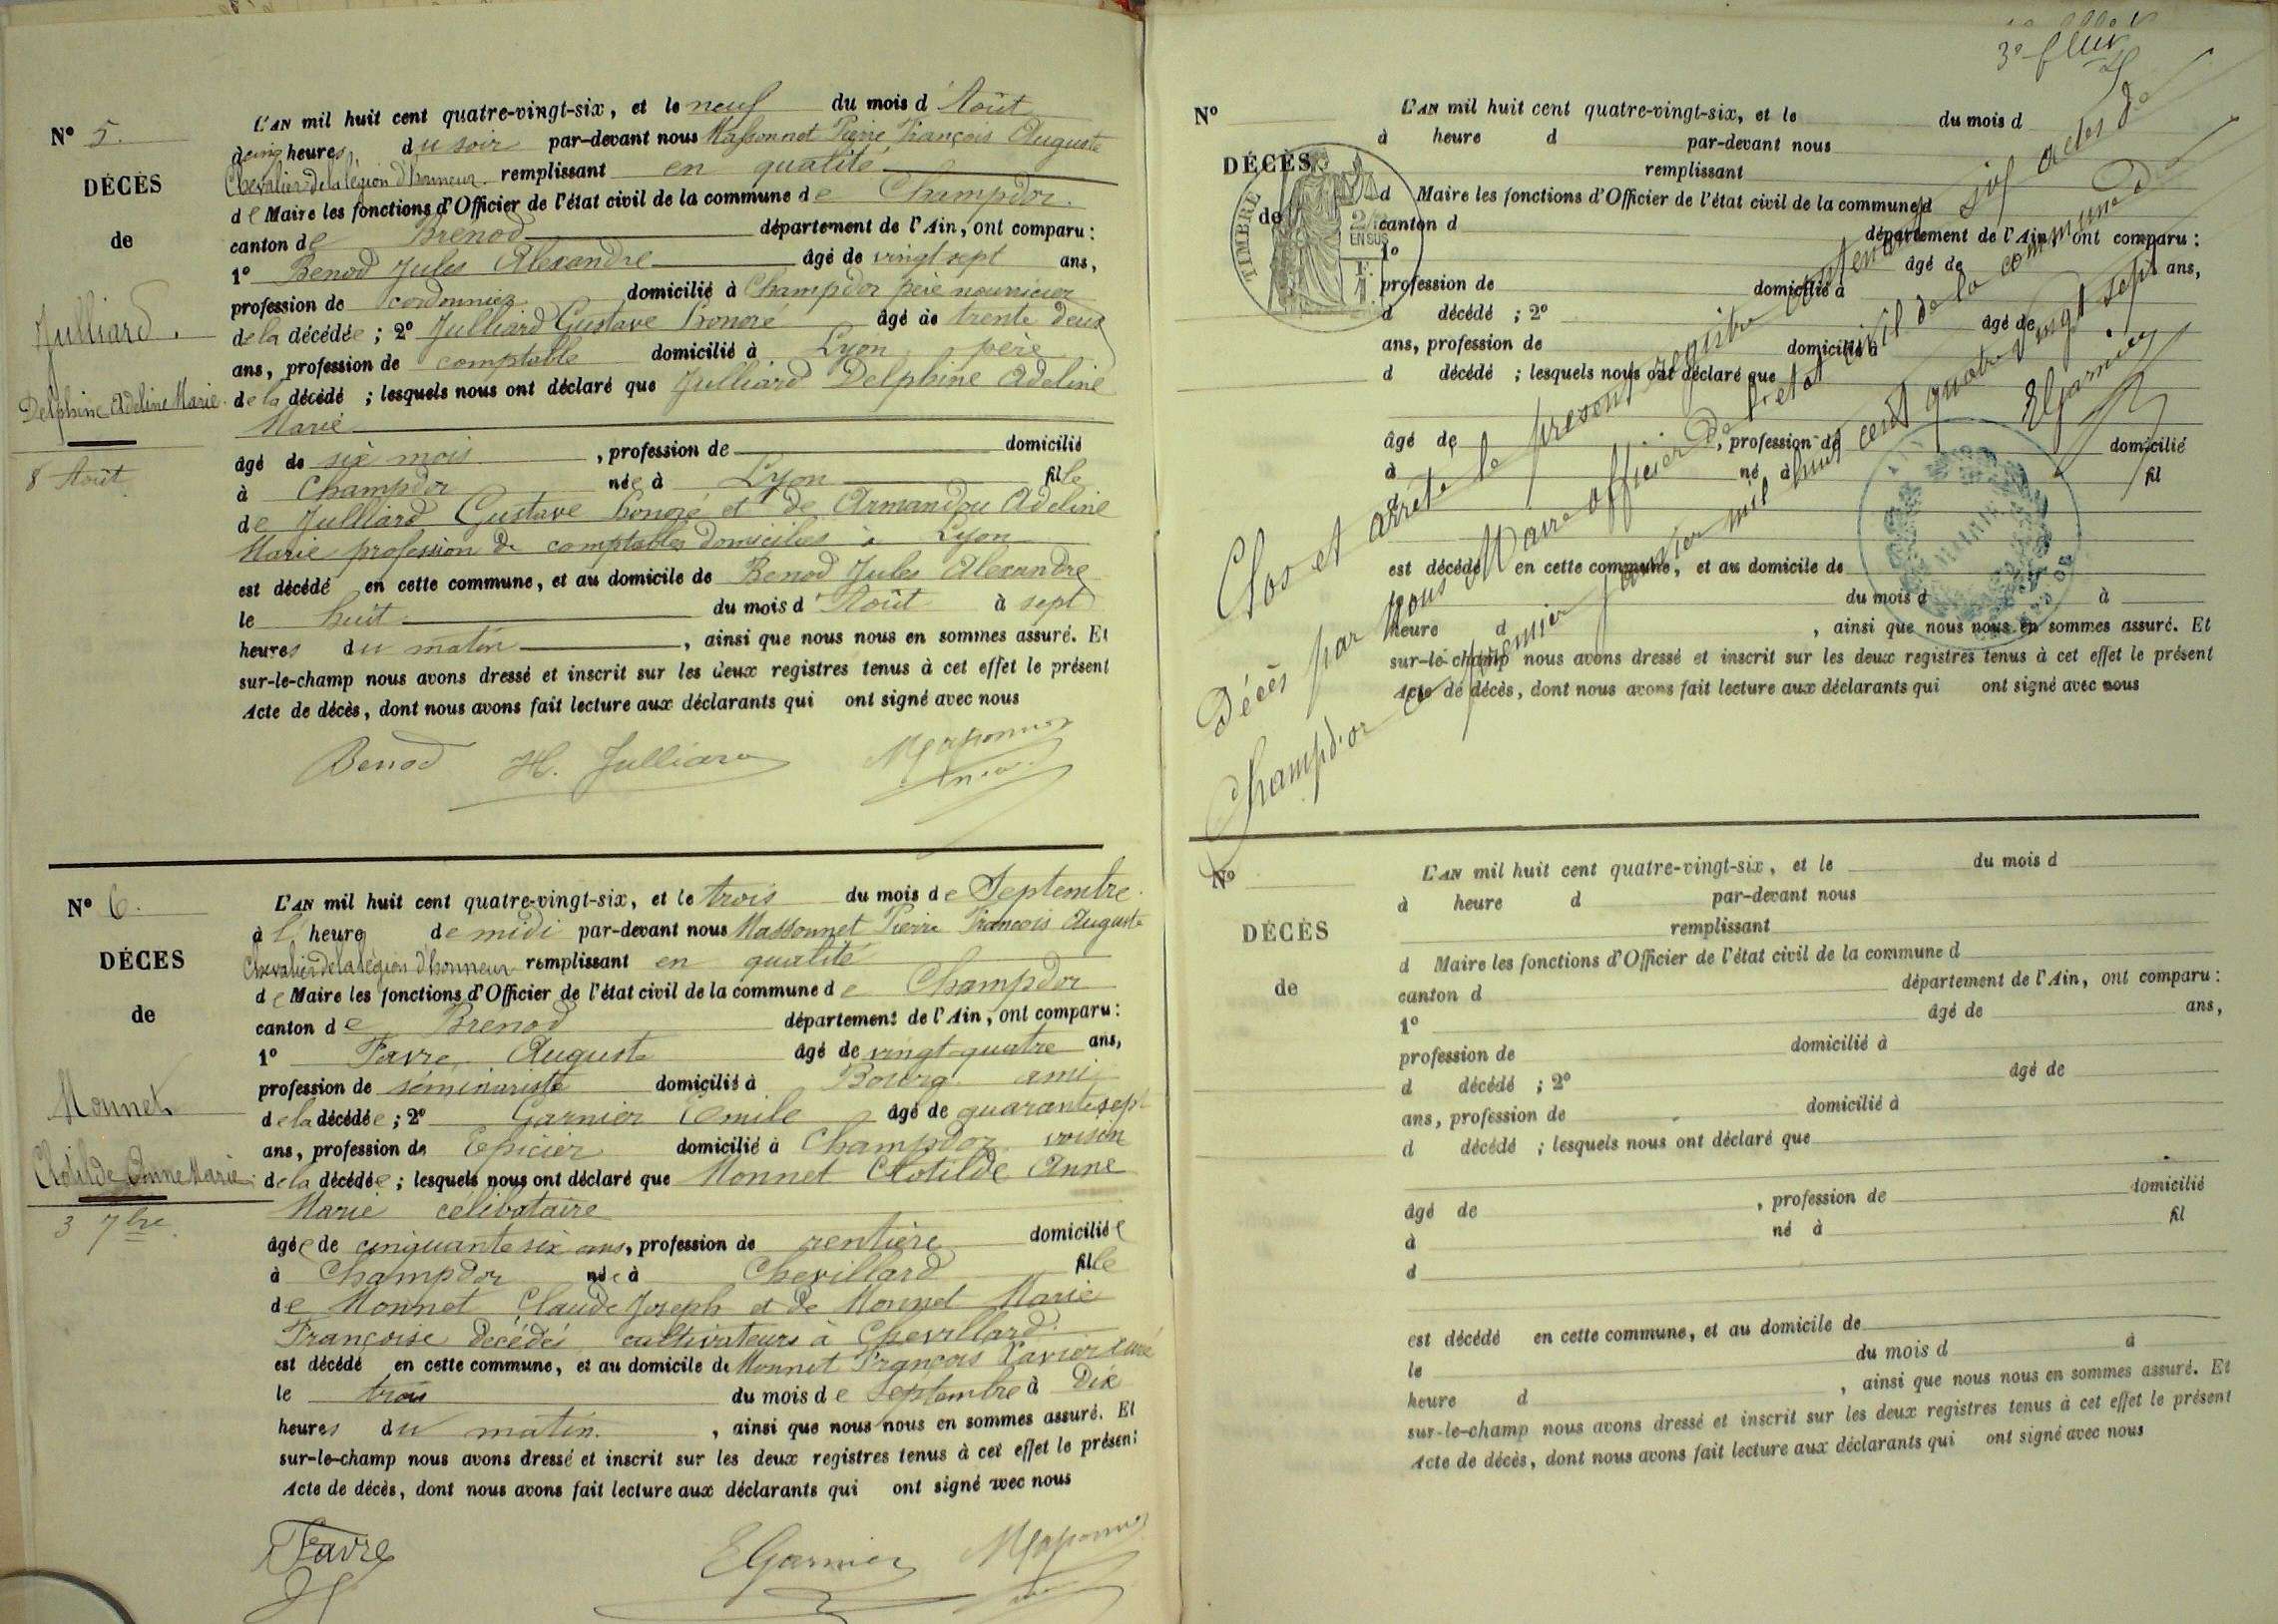 N° 5.
DÉCÈS
de
Julliard.
Delphine Adeline Marie.
8 Août
L'AN mil huit cent quatre-vingt-six, et le neuf du mois d'Août
à cinq heures du soir par-devant nous Massonnet Pierre François Auguste
Chevalier de la légion d'honneur remplissant en qualité
de Maire les fonctions d'Officier de l'état civil de la commune de Champdor.
canton de Brenod département de l'Ain, ont comparu :
1° Benod Jules Alexandre âgé de vingt sept ans,
profession de cordonnier domicilié à Champdor père nourricier
de la décédée ; 2° Julliard Gustave honoré âgé de trente deux
ans, profession de comptable domicilié à Lyon père
de la décédé ; lesquels nous ont déclaré que Julliard Delphine Adeline
Marie
âgé de six mois , profession de domicilié
à Champdor née à Lyon fille
de Julliard Gustave honoré et de Armandou Adeline
Marie profession de comptables domiciliés à Lyon
est décédé en cette commune, et au domicile de Benod Jules Alexandre
le huit du mois d'Août à sept
heures du matin , ainsi que nous nous en sommes assuré. Et
sur-le-champ nous avons dressé et inscrit sur les deux registres tenus à cet effet le présent
Acte de décès, dont nous avons fait lecture aux déclarants qui ont signé avec nous
Benod H. Julliard Massonnet
N° 6.
DÉCES
de
Monnet
Clotilde Anne Marie
3 7bre
L'AN mil huit cent quatre-vingt-six, et le trois du mois de Septembre.
à l' heure de midi par-devant nous Massonnet Pierre François Auguste
Chevalier de la légion d'honneur remplissant en qualité
de Maire les fonctions d'Officier de l'état civil de la commune de Champdor
canton de Brenod département de l'Ain, ont comparu :
1° Favre Auguste âgé de vingt-quatre ans,
profession de séminariste domicilié à Bourg ami
de la décédée ; 2° Garnier Emile âgé de quarante sept
ans, profession de Epicier domicilié à Champdor voisin
de la décédée ; lesquels nous ont déclaré que Monnet Clotilde Anne
Marie célibataire
âgée de cinquante six ans, profession de rentière domiciliée
à Champdor née à Chevillard fille
de Monnet Claude Joseph et de Monnet Marie
Françoise décédés cultivateurs à Chevillard
est décédé en cette commune, et au domicile de Monnet François Xavier curé
le trois du mois de Septembre à Dix
heures du matin. , ainsi que nous nous en sommes assuré. Et
sur-le-champ nous avons dressé et inscrit sur les deux registres tenus à cet effet le présent
Acte de décès, dont nous avons fait lecture aux déclarants qui ont signé avec nous
Favre EGarnier Massonnet
3e
N°
DÉCÈS
de
TIMBRE
2/10
EN SUS
1 F.
L'AN mil huit cent quatre-vingt-six, et le du mois d
à heure d par-devant nous
remplissant
d Maire les fonctions d'Officier de l'état civil de la commune d
canton d département de l'Ain, ont comparu :
1° âgé de ans,
profession de domicilié à
d décédé ; 2° âgé de
ans, profession de domicilié à
d décédé ; lesquels nous ont déclaré que
âgé de , profession de domicilié
à né à fil
d
est décédé en cette commune, et au domicile de
du mois d à
heure d , ainsi que nous nous en sommes assuré. Et
sur-le-champ nous avons dressé et inscrit sur les deux registres tenus à cet effet le présent
Acte de décès, dont nous avons fait lecture aux déclarants qui ont signé avec nous
Clos et arrêté le présent registre contenant six actes de
Décès par Nous Maire officier de l'état civil de la commune de
Champd'or ce premier janvier mil huit cent quatre vingt sept.
EGarnier
N°
DÉCÈS
de
L'AN mil huit cent quatre-vingt-six, et le du mois d
à heure d par-devant nous
remplissant
d Maire les fonctions d'Officier de l'état civil de la commune d
canton d département de l'Ain, ont comparu :
1° âgé de ans,
profession de domicilié à
d décédé ; 2° âgé de
ans, profession de domicilié à
d décédé ; lesquels nous ont déclaré que
âgé de , profession de domicilié
à né à fil
d
est décédé en cette commune, et au domicile de
le du mois d à
heure d , ainsi que nous nous en sommes assuré. Et
sur-le-champ nous avons dressé et inscrit sur les deux registres tenus à cet effet le présent
Acte de décès, dont nous avons fait lecture aux déclarants qui ont signé avec nous